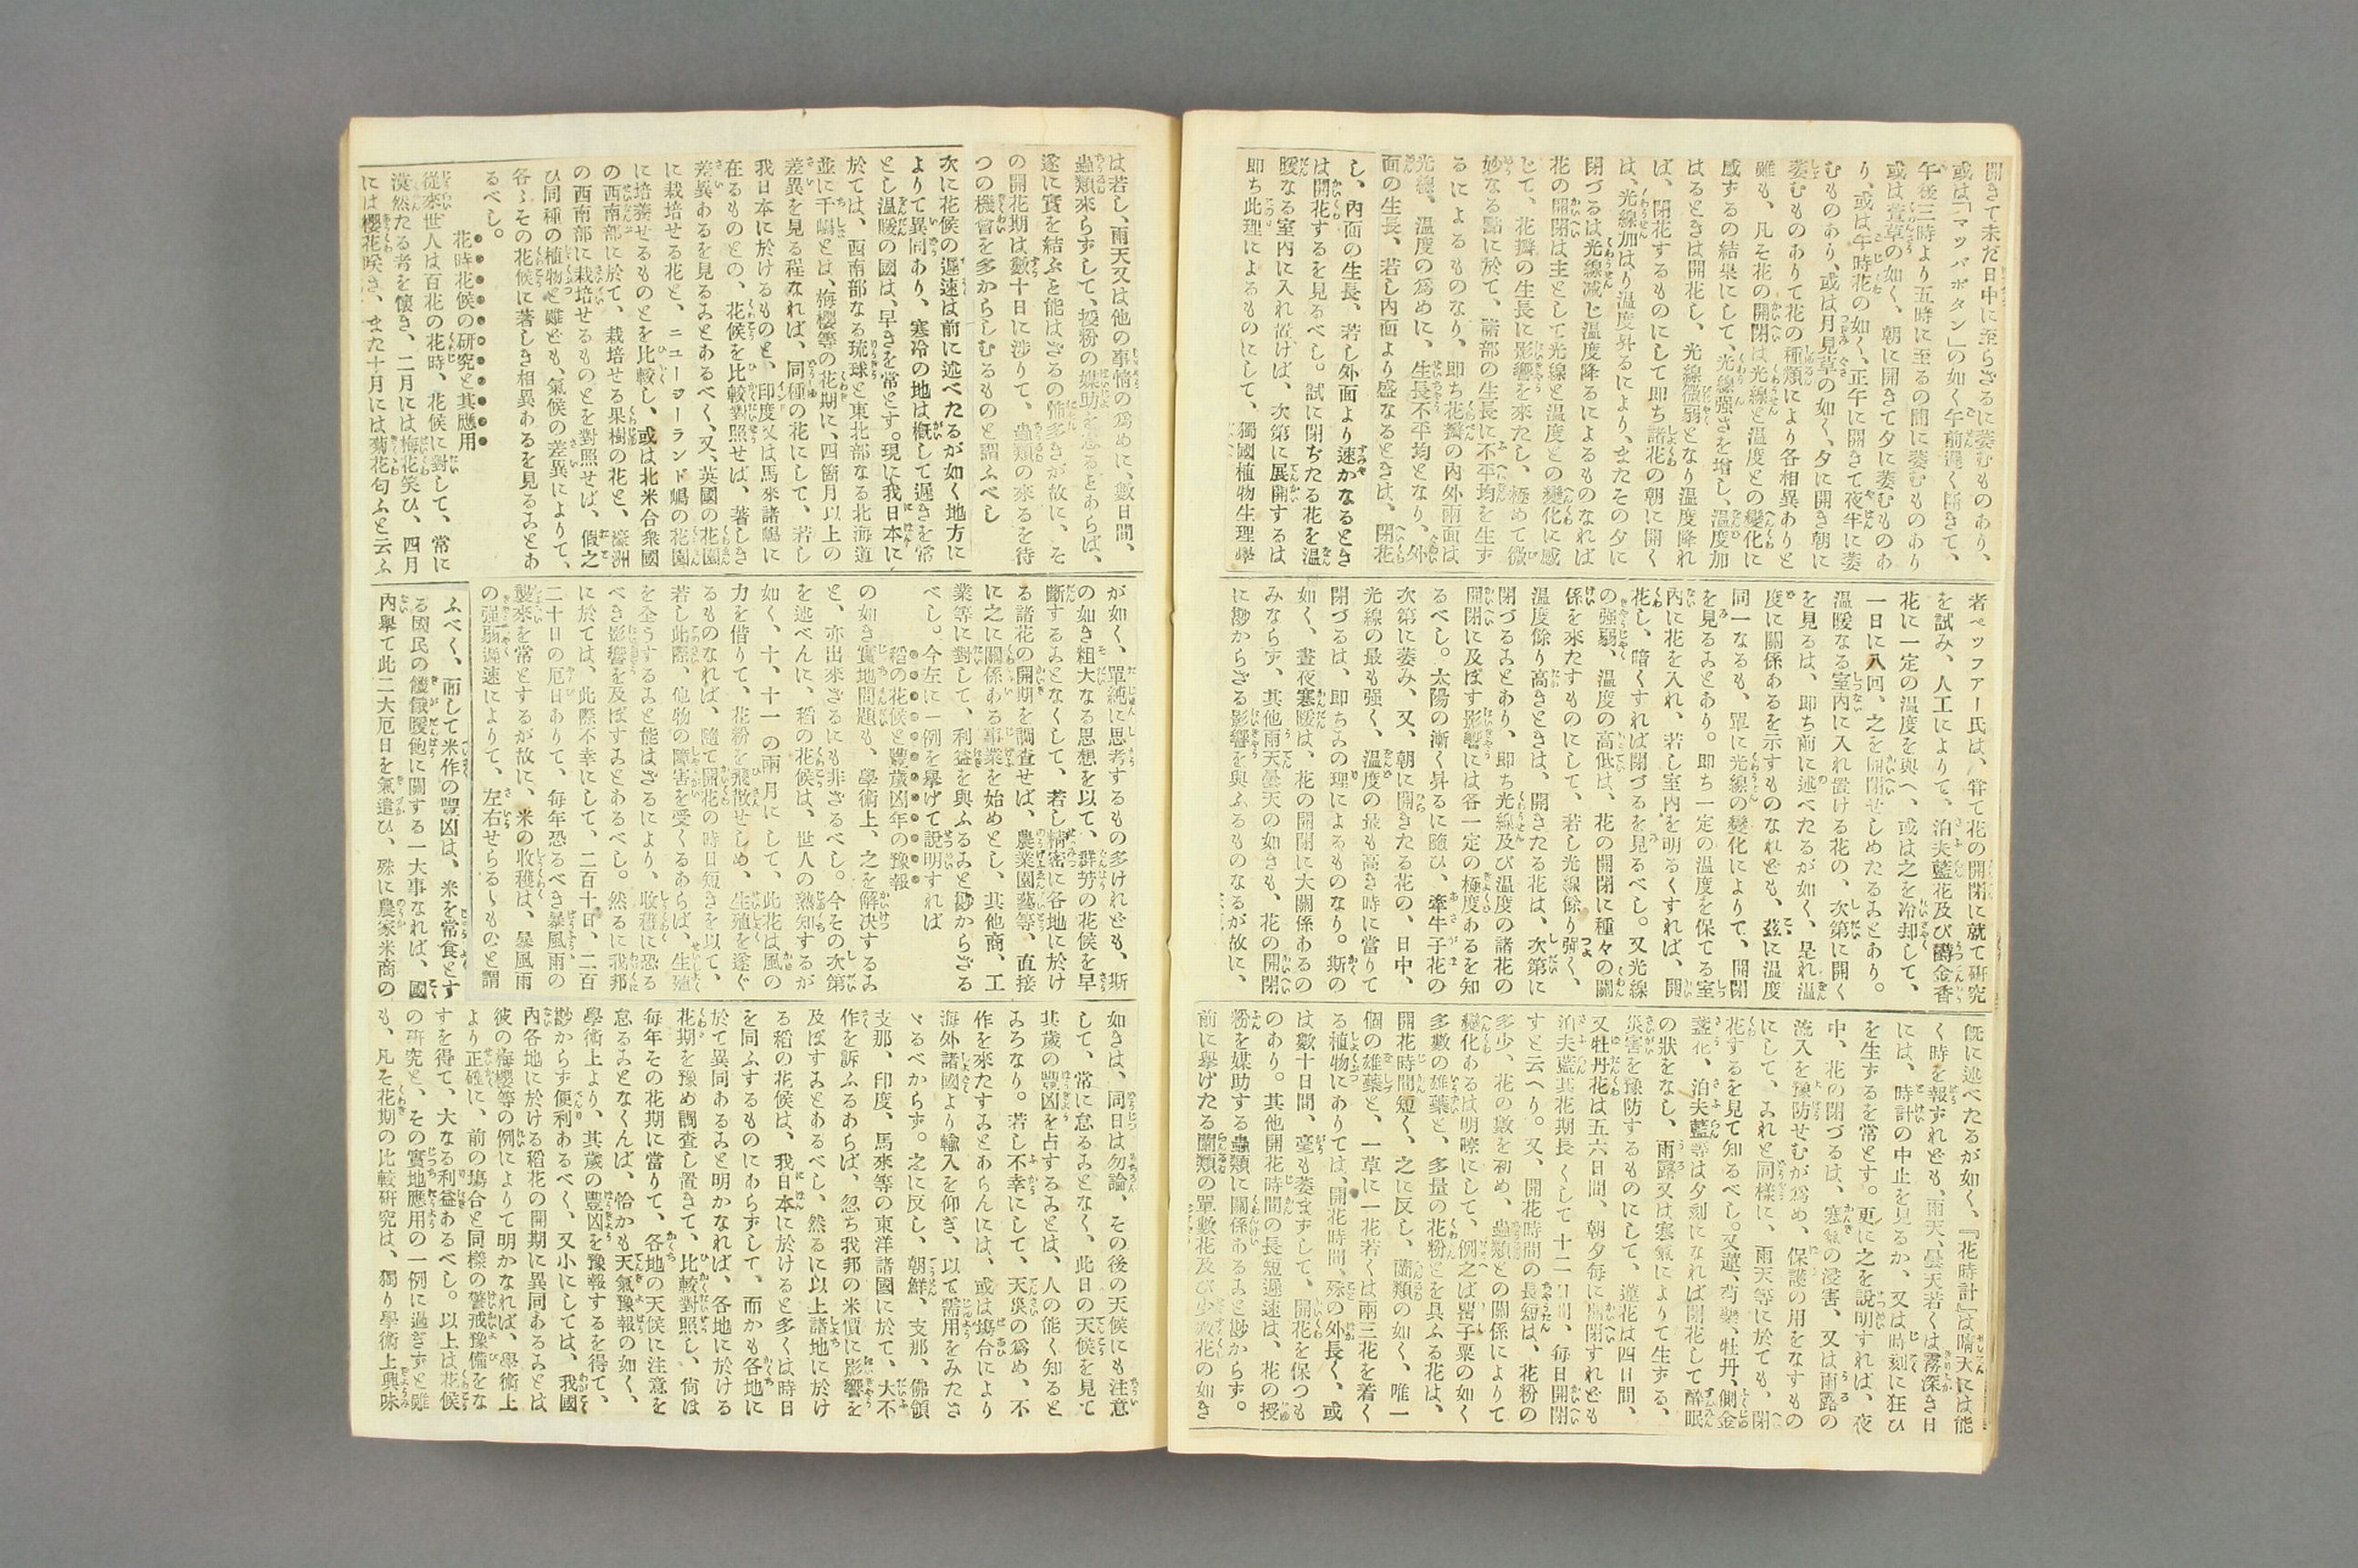 開きて未だ日中に至らざるに萎むものあり、
或は「マツバボタン」の如く午前遲く開きて、
午後三時より五時に至るの間に萎むものあり
或は萱草の如く、朝に開きて夕に萎むものあ
り、或は午時花の如く、正午に開きて夜半に萎
むものあり、或は月見草の如く、夕に開き朝に
萎むものありて花の種類により各相異ありと
雖も、凡そ花の開閉は光線と溫度との變化に
感ずるの結果にして、光線强さを增し、溫度加
はるときは開花し、光線微弱となり溫度降れ
ば、閉花するものにして即ち諸花の朝に開く
は、光線加はり溫度昇るにより、またその夕に
閉づるは光線减じ溫度降るによるものなれば
花の開閉は主として光線と溫度との變化に感
じて、花瓣の生長に影響を來たし、極めて微
妙なる點に於て、諸部の生長に不平均を生ず
るによるものなり、即ち花瓣の內外兩面は、
光線、溫度の爲めに、生長不平均となり、外
面の生長、若し內面より盛なるときは、閉花
し、內面の生長、若し外面より速かなるとき
は開花するを見るべし。試に閉ぢたる花を溫
暖なる室內に入れ置けば、次第に展開するは
即ち此理によるものにして、獨國植物生理學
者ペッファー氏は、甞て花の開閉に就て硏究
を試み、人工によりて、泊夫藍花及び鬱金香
花に一定の溫度を與へ、或は之を冷却して、
一日に八回、之を開閉せしめたるゟとあり。
溫暖なる室內に入れ置ける花の、次第に開く
を見るは、即ち前に述べたるが如く、是れ溫
度に關係あるを示すものなれども、玆に溫度
同一なるも、單に光線の變化によりて、開閉
を見るゟとあり。即ち一定の溫度を保てる室
內に花を入れ、若し室內を明るくすれば、開
花し、暗くすれば閉づるを見るべし。又光線
の强弱、溫度の高低は、花の開閉に種々の關
係を來たすものにして、若し光線餘り强く、
溫度餘り高きときは、開きたる花は、次第に
閉づるゟとあり、即ち光線及び溫度の諸花の
開閉に及ぼす影響には各一定の極度あるを知
るべし。太陽の漸く昇るに隨ひ、牽牛子花の
次第に萎み、又、朝に開きたる花の、日中、
光線の最も强く、溫度の最も高き時に當りて
閉づるは、即ちゟの理によるものなり。斯の
如く、晝夜寒暖は、花の開閉に大關係あるの
みならず、其他雨天曇天の如きも、花の開閉
に尠からざる影響を與ふるものなるが故に、
旣に述べたるが如く、『花時計』は晴天には能
く時を報ずれども、雨天、曇天若くは霧深き日
には、時計の中止を見るか、又は時刻に狂ひ
を生ずるを常とす。更に之を說明すれば、夜
中、花の閉づるは、寒氣の浸害、又は雨露の
流入を豫防せむが爲め、保護の用をなすもの
にして、ゟれと同樣に、雨天等に於ても、閉
花するを見て知るべし。又蓮、芍藥、牡丹、側金
盞花、泊夫藍等は夕刻になれば閉花して醉眠
の狀をなし、雨露又は寒氣によりて生ずる、
災害を豫防するものにして、蓮花は四日間、
又牡丹花は五六日間、朝夕每に開閉すれども
泊夫藍其花期長くして十二日間、每日開閉
すと云へり。又、開花時間の長短は、花粉の
多少、花の數を初め、蟲類との關係によりて
變化あるは明瞭にして、例之ば罌子粟の如く
多數の雄蘂と、多量の花粉とを具ふる花は、
開花時間短く、之に反し、蘭類の如く、唯一
個の雄蘂と、一草に一花若くは兩三花を着く
る植物にありては、開花時間、殊の外長く、或
は數十日間、毫も萎まずして、開花を保つも
のあり。其他開花時間の長短遲速は、花の授
粉を媒助する蟲類に關係あるゟと尠からず。
前に擧げたる蘭類の單數花及び少數花の如き
は若し、雨天又は他の事情の爲めに、數日間、
蟲類來らずして、授粉の媒助を怠るゟあらば、
遂に實を結ぶを能はざるの怖多きが故に、そ
の開花期は數十日に涉りて、蟲類の來るを待
つの機會を多からしむるものと謂ふべし
次に花候の遲速は前に述べたるが如く地方に
よりて異同あり、寒冷の地は槪して遲きを常
とし溫暖の國は、早きを常とす。現に我日本に
於ては、西南部なる琉球と東北部なる北海道
並に千嶋とは、梅櫻等の花期に、四箇月以上の
差異を見る程なれば、同種の花にして、若し
我日本に於けるものと、印度又は馬來諸嶋に
在るものとの、花候を比較對照せば、著しき
差異あるを見るゟとあるべく、又、英國の花園
に栽培せる花と、ニューヨーランド嶋の花園
に培養せるものとを比較し、或は北米合衆國
の西南部に於て、栽培せる果樹の花と、濠洲
の西南部に栽培せるものとを對照せば、假之
ひ同種の植物と雖ども、氣候の差異によりて、
各々その花候に著しき相異あるを見るゟとあ
るべし。
花時花候の硏究と其應用
從來世人は百花の花時、花候に對して、常に
漠然たる考を懷き、二月には梅花笑ひ、四月
には櫻花咲き、また十月には菊花匂ふと云ふ
が如く、單純に思考するもの多けれども、斯
の如き粗大なる思想を以て、群芳の花候を早
斷するゟとなくして、若し精密に各地に於け
る諸花の開期を調査せば、農業園藝等、直接
に之に關係ある事業を始めとし、其他商、工
業等に對して、利益を與ふるゟと尠からざる
べし。今左に一例を擧げて說明すれば
稻の花候と豐歲凶年の豫報
の如き實地問題も、學術上、之を解決するゟ
と、亦出來ざるにも非ざるべし。今その次第
を述べんに、稻の花候は、世人の熟知するが
如く、十、十一の兩月にして、此花は風の
力を借りて、花粉を飛散せしめ、生殖を遂ぐ
るものなれば、隨て開花の時日短きを以て、
若し此際、他物の障害を受くるあらば、生殖
を全うするゟと能はざるにより、收穫に恐る
べき影響を及ぼすゟとあるべし。然るに我邦
に於ては、此際不幸にして、二百十日、二百
二十日の厄日ありて、每年恐るべき暴風雨の
襲來を常とするが故に、米の收穫は、暴風雨
の强弱遲速によりて、左右せらるゝものと謂
ふべく、而して米作の豐凶は、米を常食とす
る國民の饑餓暖飽に關する一大事なれば、國
內擧て此二大厄日を氣遣ひ、殊に農家米商の
如きは、同日は勿論、その後の天候にも注意
して、常に怠るゟとなく、此日の天候を見て
其歲の豐凶を占するゟとは、人の能く知ると
ゟろなり。若し不幸にして、天災の爲め、不
作を來たすゟとあらんには、或は塲合により
海外諸國より輸入を仰ぎ、以て需用をみたさ
ゞるべからず。之に反し、朝鮮、支那、佛領
支那、印度、馬來等の東洋諸國に於て、大不
作を訴ふるあらば、忽ち我邦の米價に影響を
及ぼすゟとあるべし、然るに以上諸地に於け
る稻の花候は、我日本に於けると多くは時日
を同ふするものにあらずして、而かも各地に
於て異同あるゟと明かなれば、各地に於ける
花期を豫め調査し置きて、比較對照し、尙は
每年その花期に當りて、各地の天候に注意を
怠るゟとなくんば、恰かも天氣豫報の如く、
學術上より、其歲の豐凶を豫報するを得て、
尠からず便利あるべく、又小にしては、我國
內各地に於ける稻花の開期に異同あるゟとは
彼の梅櫻等の例によりて明かなれば、學術上
より正確に、前の塲合と同樣の警戒豫備をな
すを得て、大なる利益あるべし。以上は花候
の硏究と、その實地應用の一例に過ぎずと雖
も、凡そ花期の比較硏究は、獨り學術上興味